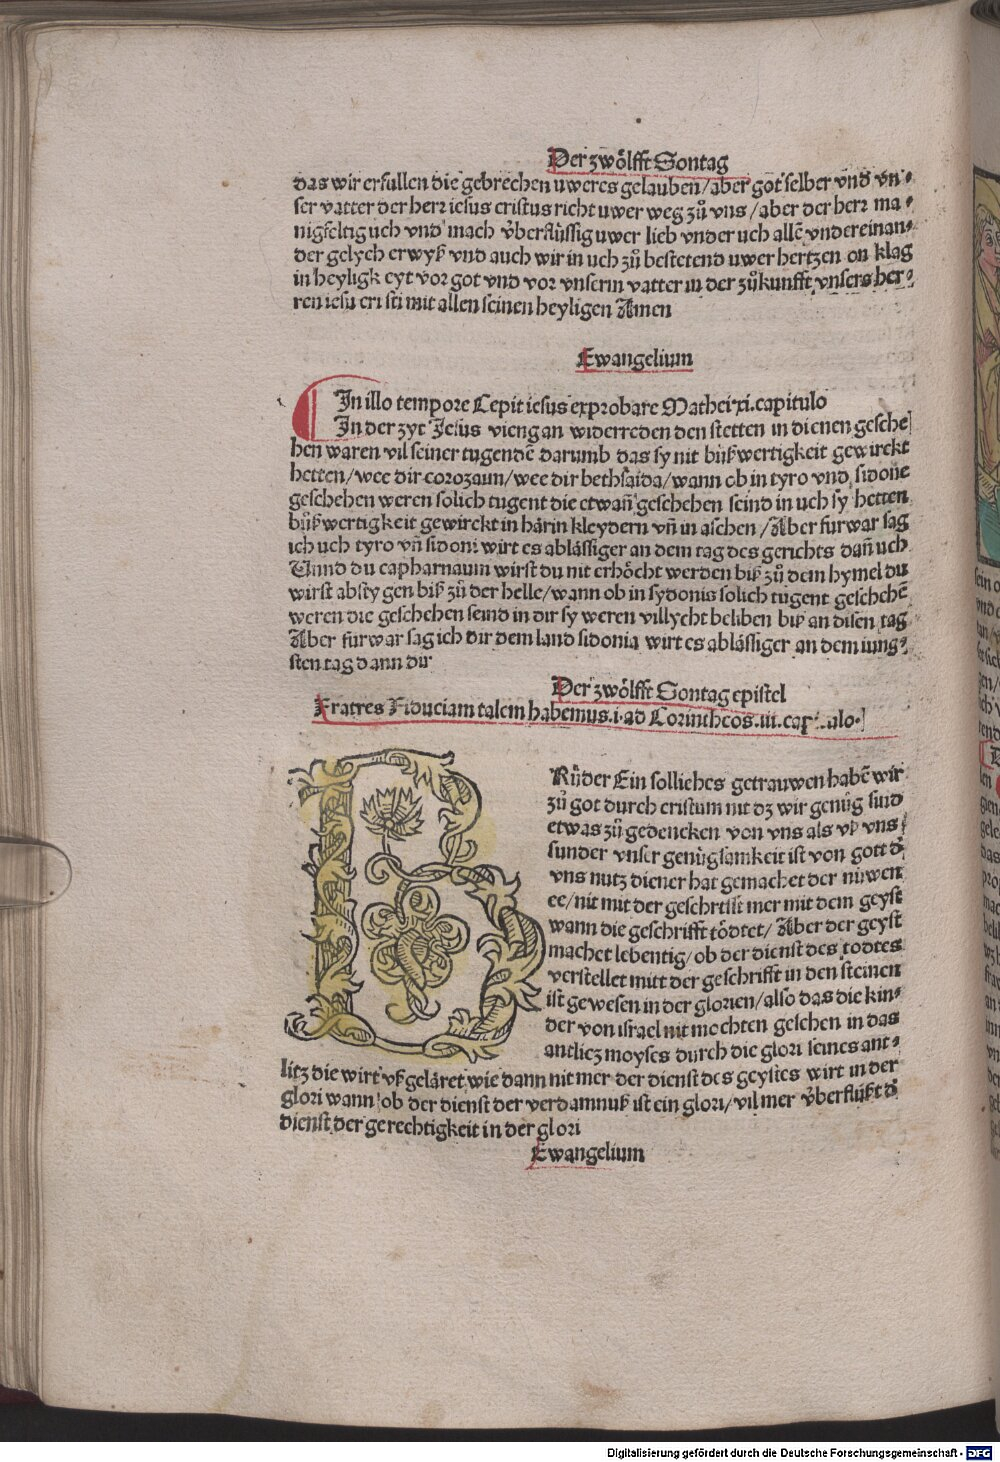 Der zwölfft Sontag
das wir erfullen die gebrechen uweres gelauben/aber got selber vnd vn⸗
ser vatter der herr iesus cristus richt uwer weg zů vns/aber der herr ma⸗
nigfeltig uch vnd mach v̈berflüssig uwer lieb vnder uch allē vnder einan⸗
der gelych erwyß vnd auch wir in uch zů bestetend uwer hertzen on klag
in heyligkeyt vor got vnd vor vnserm vatter in der zůkunfft vnsers her⸗
ren iesu cristi mit allen seinen heyligen Amen
Ewangelium
In illo tempore Cepit iesus exprobare Mathei xi.capitulo
In der zyt Jesus vieng an widerreden den stetten in dienen gesche
hen waren vil seiner tugendē darumb das sy nit bůßwertigkeit gewirckt
hetten/wee dir corozaun/wee dir bethsaida/wann ob in tyro vnd sidone
geschehen weren solich tugent die etwañ geschehen seind in uch sy hetten
bůßwertigkeit gewirckt in härin kleydern vñ in aschen/Aber furwar sag
ich uch tyro vñ sidoni wirt es ablässiger an dem tag des gerichts dañ uch
Vnnd du capharnaum wirst du nit erhöcht werden biß zů dem hymel du
wirst abstygen biß zů der helle/wann ob in sydonis solich tugent geschehē
weren die geschehen seind in dir sy weren villycht beliben biß an disen tag
Aber furwar sag ich dir dem land sidonia wirt es ablässiger an dem iung⸗
sten tag dann dir
Der zwölfft Sontag epistel
Fratres Fiduciam talem habemus.i.ad Corintheos.iii.
BRůder Ein solliches getrauwen habē wir
zů got durch cristum nit dz wir genůg sind
etwas zů gedencken von vns als vß vns
sunder vnser genůgsamkeit ist von gott d̄
vns nutz diener hat gemachet der nüwen
ee/nit mit der geschrifft mer mit dem geyst
wann die geschrifft tödtet/Aber der geyst
machet lebentig/ob der dienst des todtes
verstellet mitt der geschrifft in den steinen
ist gewesen in der glorien/also das die kin⸗
der von israel nit mochten gesehen in das
antlicz moyses durch die glori seines ant⸗
litz die wirt vßgeläret wie dann nit mer der dienst des geystes wirt in der
glori wann ob der dienst der verdamnuß ist ein glori/vil mer v̈berflüßt d̄
dienst der gerechtigkeit in der glori
Ewangelium
Digitalisierung gefördert durch die Deutsche Forschungsgemeinschaft - DFG